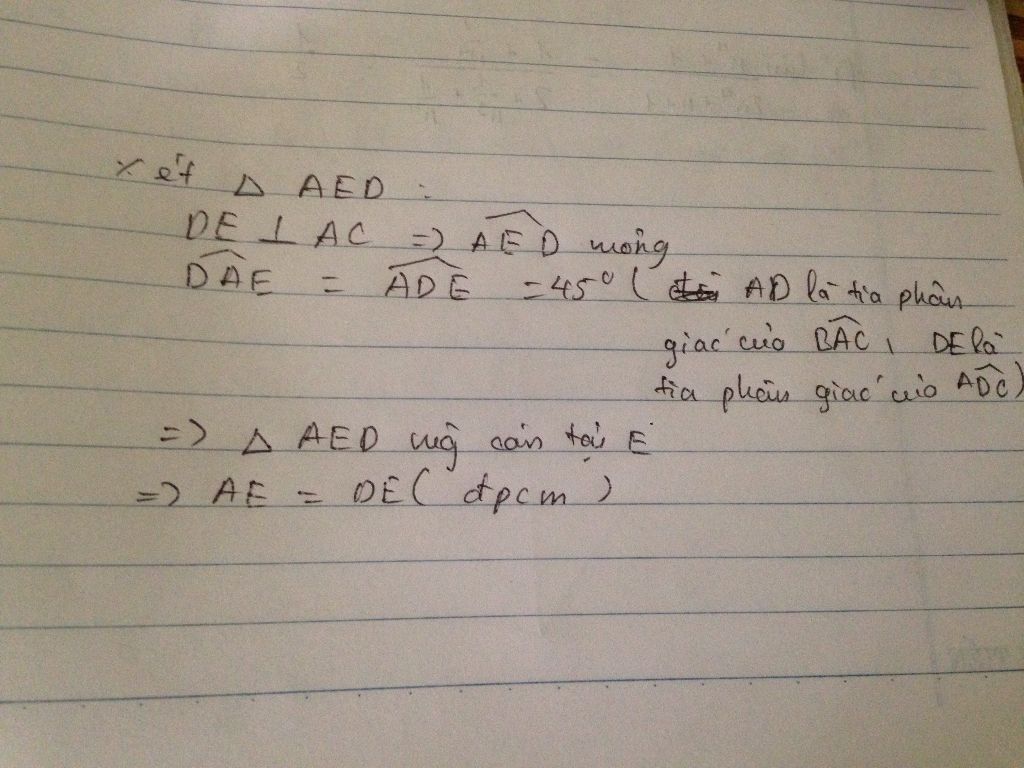 Xét Δ AED :
DE ⊥ AC => \widehat{AED} vuông
\widehat{DAE} = \widehat{ADE} = 45° ( AD là tia phân
giác của \widehat{BAC}, DE là
tia phân giác của \widehat{ADC})
=> Δ AED vuông cân tại E
=> AE = DE ( đpcm )